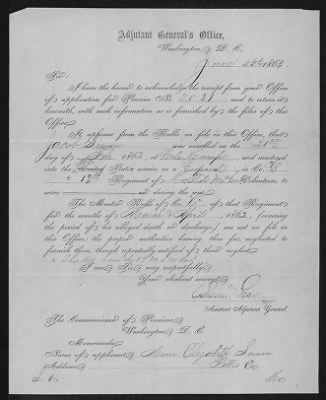 Adjutant General's Office,
Washington, D. C.
June 22d, 1863
Sir:
I have the honor to acknowledge the receipt from your Office
of application for Pension No. and to return it
herewith, with such information as is furnished by the files of this
Office.
It appears from the Rolls on file in this Office, that
Jacob was enrolled on the 21st
day of 1862, at and mustered
into the service as a in Co.
12th Regiment of Volunteers, to
serve and during the war.
The Muster Rolls of Co. of that Regiment
for the months of March & April, 1862, (covering
the period of his alleged death or discharge,) are not on file in
this Office; the proper authorities having, thus far, neglected to
furnish them, though repeatedly notified of their neglect
I am Sir, very respectfully,
Your obedient servant,
Assistant Adjutant General.
The Commissioner of Pensions,
Washington, D. C.
Memoranda:
Name of applicant, Elizabeth
Address, Co
Mo